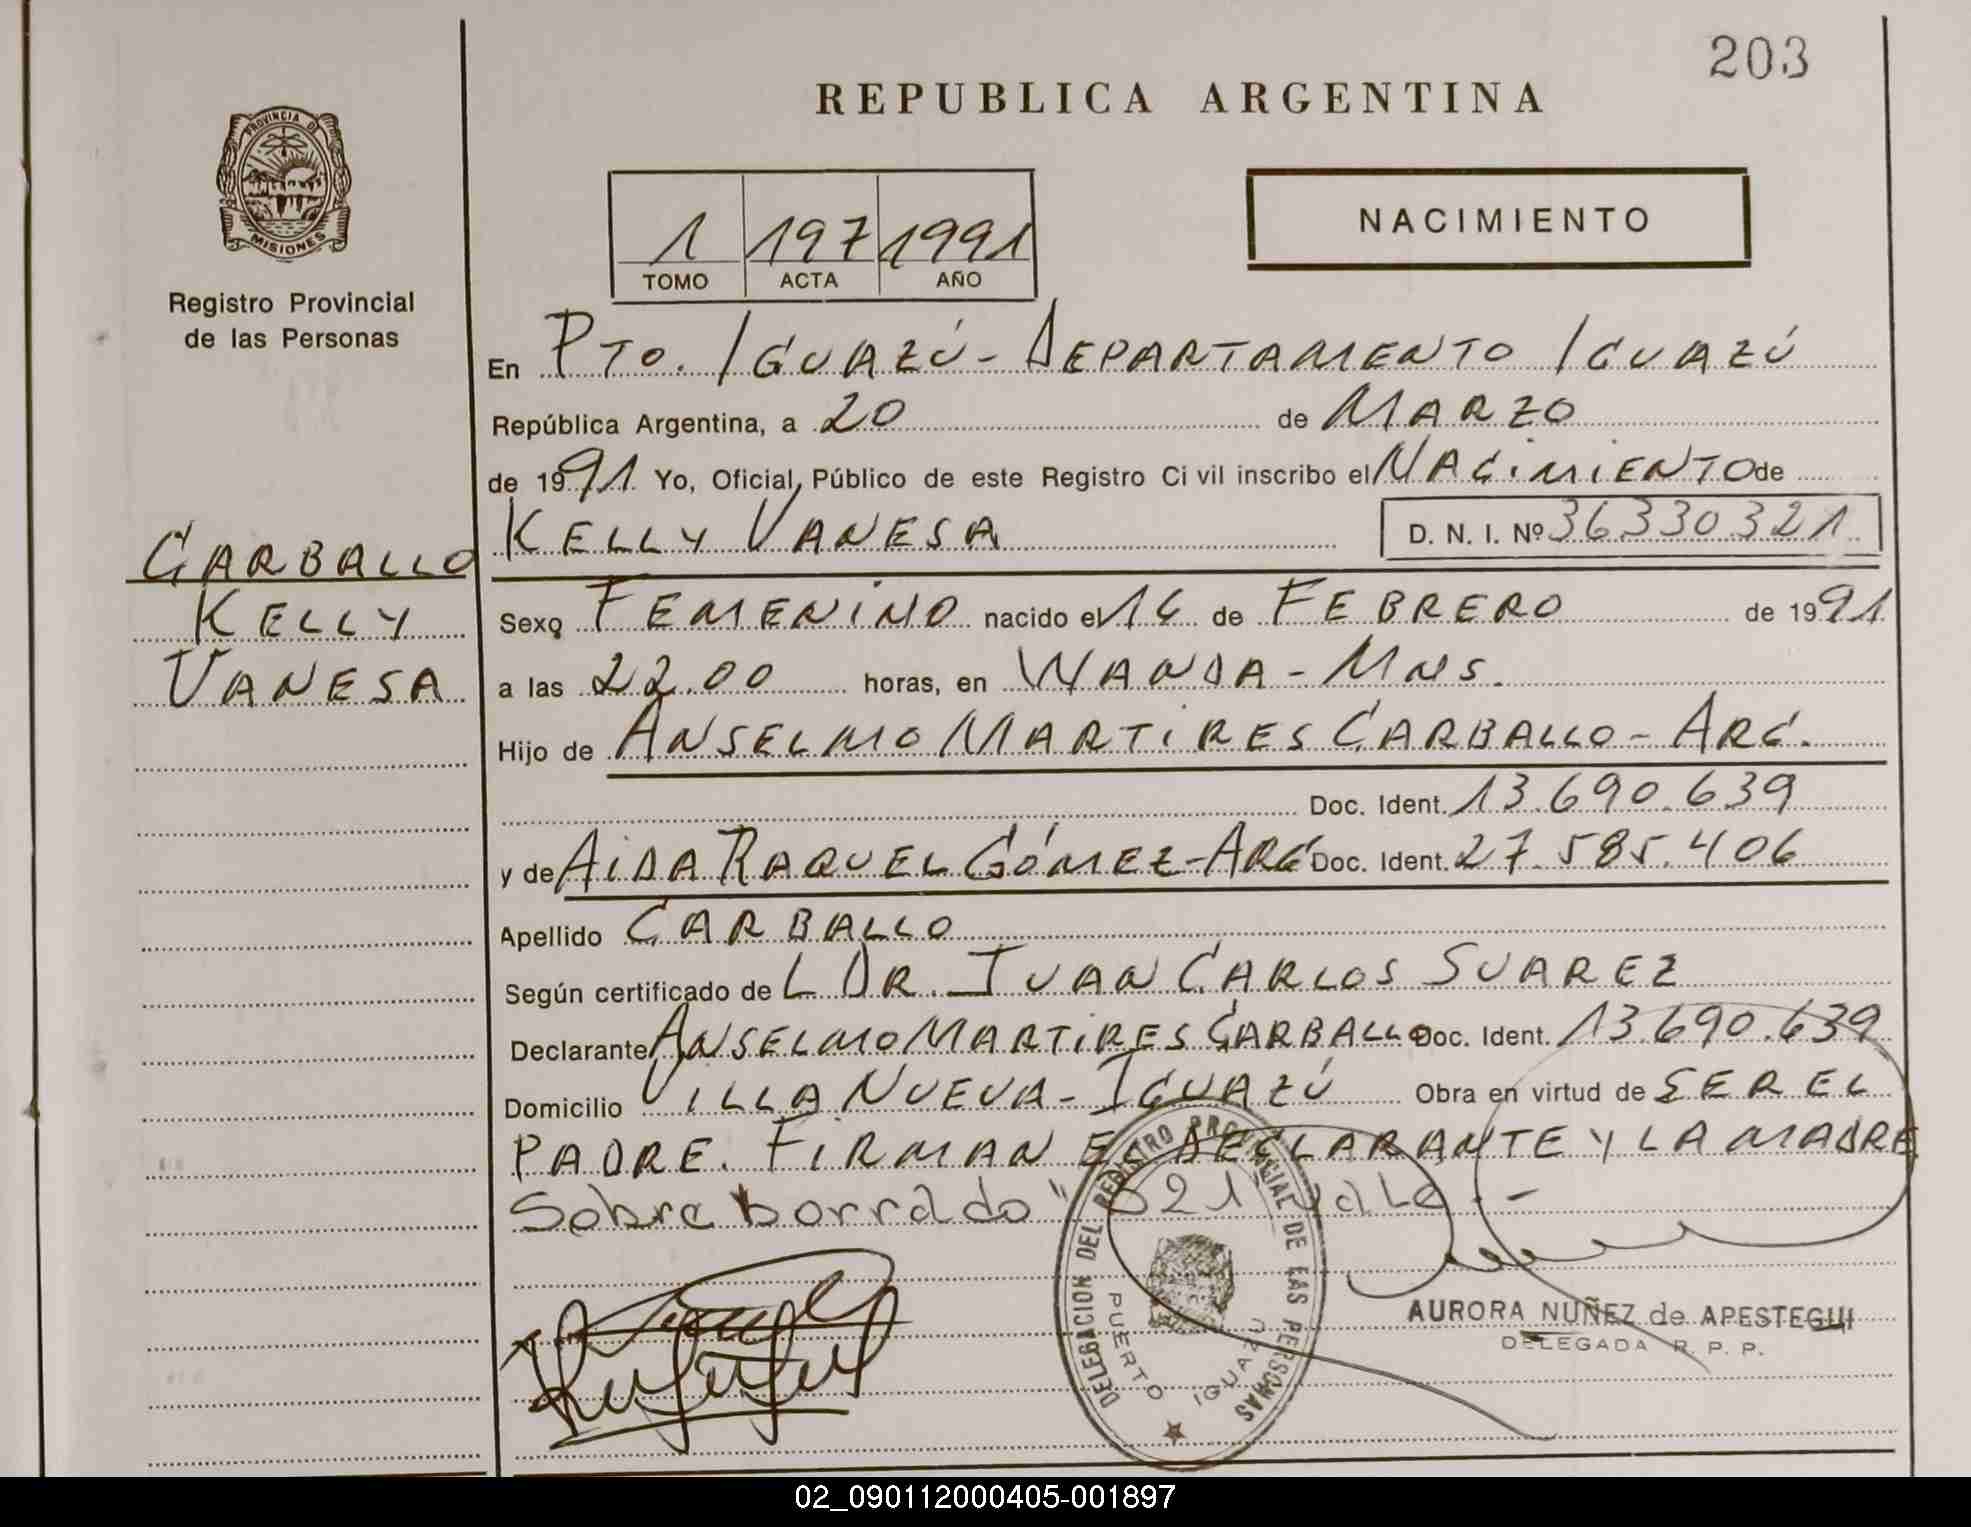 203
REPUBLICA ARGENTINA
PROVINCIA DE
MISIONES
Registro Provincial
de las Personas
1 197 1991
TOMO ACTA AÑO
NACIMIENTO
En PTO. IGUAZÚ - DEPARTAMENTO IGUAZÚ
República Argentina, a 20 de MARZO
de 1991 Yo, Oficial Público de este Registro Ci vil inscribo el NACIMIENTO de
KELLY VANESA D. N. I. Nº 36330321
CARBALLO
KELLY
VANESA
Sexo FEMENINO nacido el 14 de FEBRERO de 1991
a las 22.00 horas, en WANDA - MNS.
Hijo de ANSELMO MARTIRES CARBALLO - ARG.
Doc. Ident. 13.690.639
y de AIDA RAQUEL GÓMEZ - ARG Doc. Ident. 27.585.406
Apellido CARBALLO
Según certificado de L DR. JUAN CARLOS SUAREZ
Declarante ANSELMO MARTIRES CARBALLO Doc. Ident. 13.690.639
Domicilio VILLA NUEVA - IGUAZÚ Obra en virtud de SER EL
PADRE. FIRMAN EL DECLARANTE Y LA MADRE
Sobre borrado " 321 vale. -
DELEGACION DEL REGISTRO PROVINCIAL DE LAS PERSONAS
PUERTO IGUAZU
AURORA NUÑEZ de APESTEGUI
DELEGADA R. P. P.
02_090112000405-001897